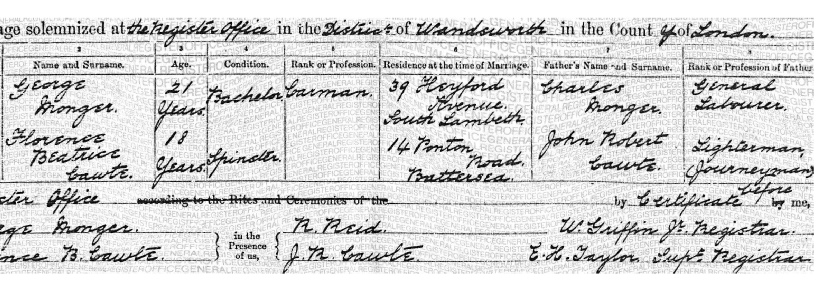 age solemnized at the Register Office in the District of Wandsworth in the County of London.
2 3 4 5 6 7 8
Name and Surname. Age. Condition. Rank or Profession. Residence at the time of Marriage. Father's Name and Surname. Rank or Profession of Father
George Monger. 21 Years Bachelor Carman. 39 Heyford Avenue. South Lambeth Charles Monger. General Labourer.
Florence Beatrice Cawte. 18 Years. Spinster. 14 Ponton Road. Battersea. John Robert Cawte. Lighterman, (Journeyman)
ster Office according to the Rites and Ceremonies of the by Certificate before by me,
ge Monger. in the Presence of us, R. Reid. W. Griffin Jr. Registrar.
nce B. Cawte. J. R. Cawte E. H. Taylor Supt Registrar